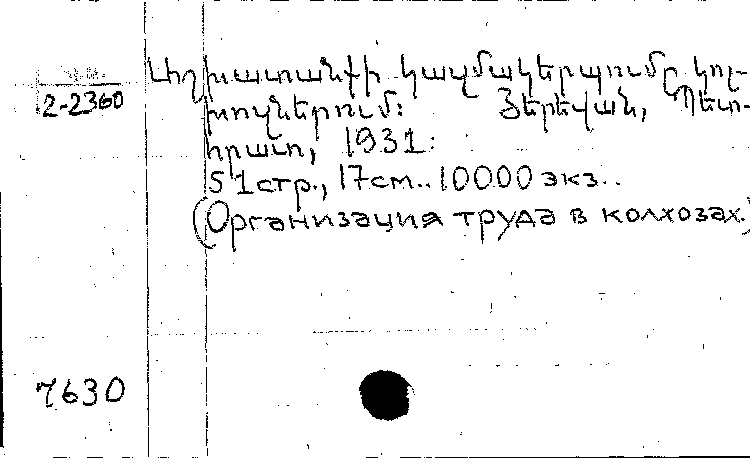 Աշխատանքի կազմակերպումը կոլ-
2-2360
խոզներում։ Յերեվան, Պետ-
հրատ, 1931։
51стр., 17см.. 10000 экз..
(Организация труда в колхозах.)
7630